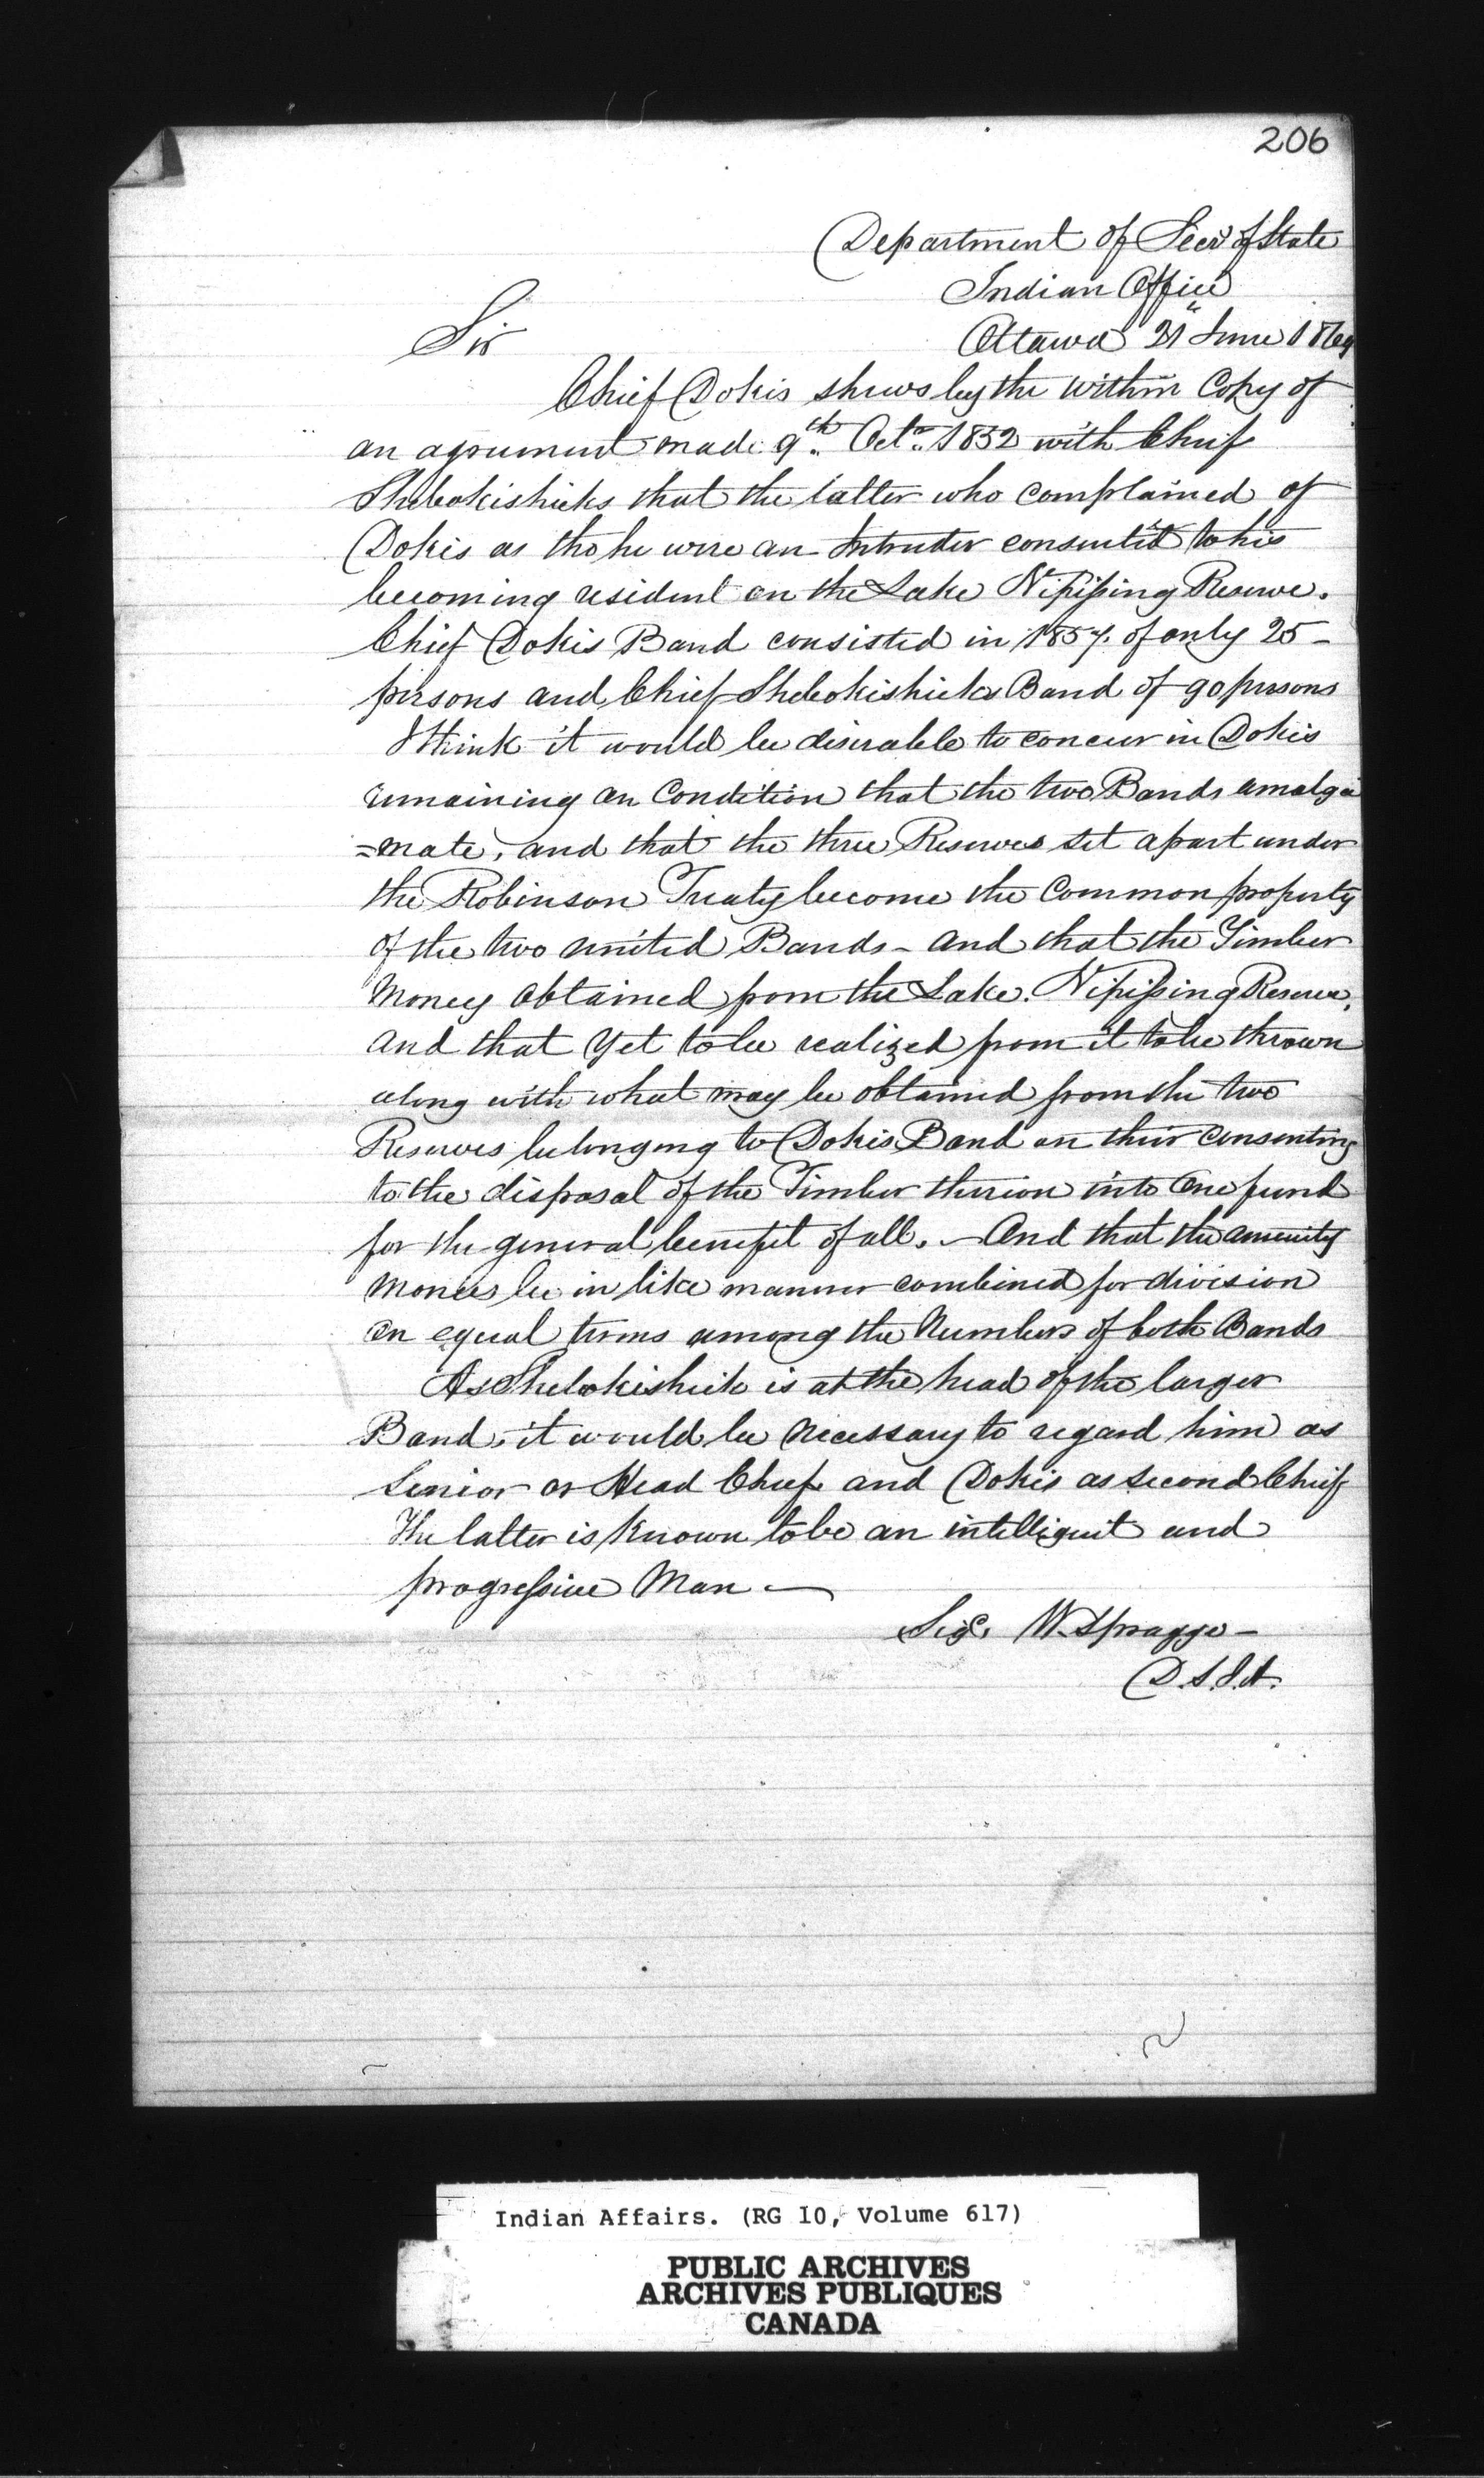 206
Department of Secy of State
Indian Office
Sir
Ottawa 21 June 1869
Chief Dokis shews by the within Copy of
an agreement made 9th Octr. 1852 with Chief
Shebokishicks that the latter who complained of
Dokis as tho he were an Intruder consented to his
becoming resident on the Lake Nipissing Reserve.
Chief Dokis Band consisted in 1857. of only 25-
persons and Chief Shebokishicks Band of 90 persons
I think it would be desirable to concur in Dokis
remaining on Condition that the two Bands amalga
=mate, and that the three Reserves set apart under
the Robinson Treaty become the Common property
of the two united Bands - and that the Timber
Money obtained from the Lake. Nipissing Reserve,
and that Yet to be realized from it to be thrown
along with what may be obtained from the two
Reserves belonging to Dokis Band on their consenting
to the disposal of the Timber thereon into One fund
for the general benefit of all. - And that the annuity
Monies be in like manner combined for division
on equal terms among the Numbers of both Bands
As Shebokishick is at the head of the larger
Band, it would be Necessary to regard him as
Senior or Head Chief and Dokis as second Chief
The latter is Known to be an intelligent and
progressive Man —
Sigd. W. Spragge -
D.S.I.A.
Indian Affairs. (RG 10, Volume 617)
PUBLIC ARCHIVES
ARCHIVES PUBLIQUES
CANADA